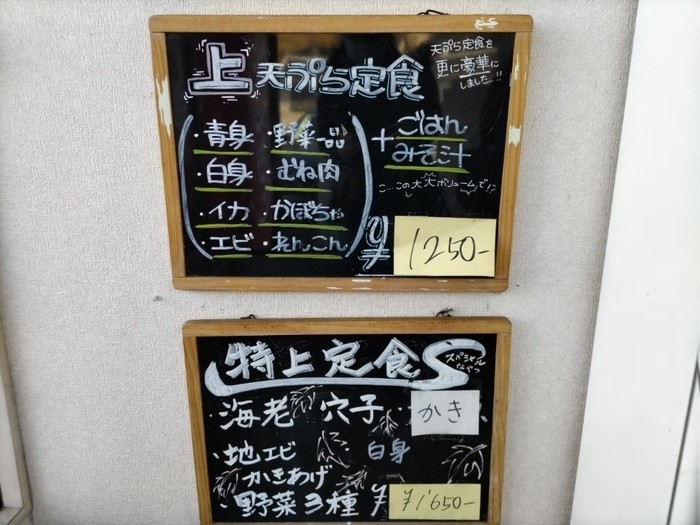 上 天ぷら定食
天ぷら定食を
更に豪華に
しました…!!
・青身 ・野菜一品
・白身 ・むね肉
・イカ ・かぼちゃ
・エビ ・れんこん
+ ごはん
みそ汁
こ…この大大ボリュームで!?
¥ 1250-
特上定食
スペシャル
なやつ
・海老 穴子 かき
・地エビ
かきあげ
白身
・野菜3種 ¥ ¥1650-